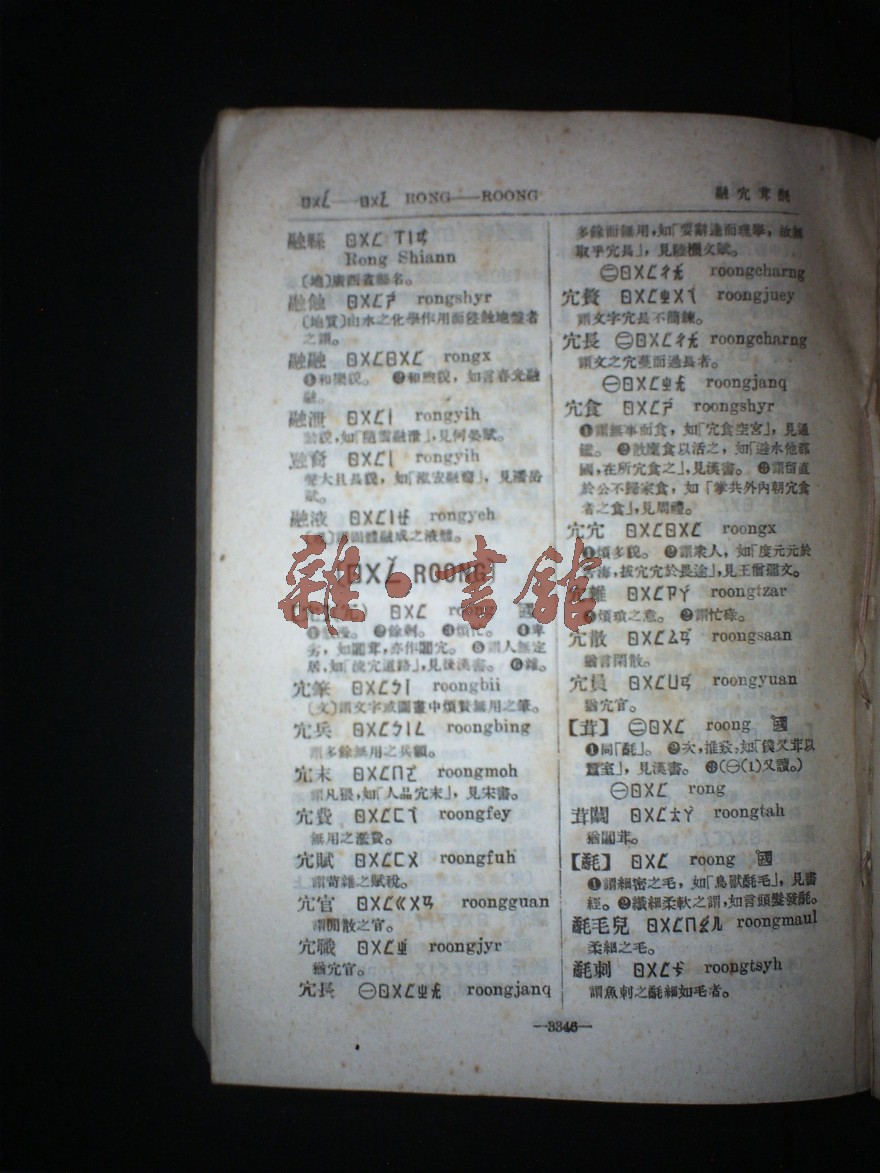 ㄖㄨㄥˊ——ㄖㄨㄥˇ RONG——ROONG 融宂茸氄
融縣 ㄖㄨㄥ ㄒㄧㄢ
Rong Shiann
〔地〕廣西省縣名。
融蝕 ㄖㄨㄥㄕ rongshyr
〔地質〕山水之化學作用而侵蝕地盤者
之謂。
融融 ㄖㄨㄥㄖㄨㄥ rongx
❶和樂貌。 ❷和煦貌，如言春光融
融。
融泄 ㄖㄨㄥㄧ rongyih
貌，如「隨雲融泄」，見何晏賦。
融裔 ㄖㄨㄥㄧ rongyih
聲大且長貌，如「泓宏融裔」，見潘岳
賦。
融液 ㄖㄨㄥㄧㄝ rongyeh
固體融成之液體。
ㄖㄨㄥˇ ROONG
ㄖㄨㄥ roong 國
❷餘剩。 ❸煩忙。 ❹卑
劣，如闒茸，亦作闒宂。 ❺謂人無定
居，如「流宂道路」，見後漢書。 ❻雜。
宂筆 ㄖㄨㄥㄅㄧ roongbii
〔文〕謂文字或圖畫中煩贅無用之筆。
宂兵 ㄖㄨㄥㄅㄧㄥ roongbing
謂多餘無用之兵額。
宂末 ㄖㄨㄥㄇㄛ roongmoh
謂凡猥，如「人品宂末」，見宋書。
宂費 ㄖㄨㄥㄈㄟ roongfey
無用之濫費。
宂賦 ㄖㄨㄥㄈㄨ roongfuh
謂苛雜之賦稅。
宂官 ㄖㄨㄥㄍㄨㄢ roongguan
謂閒散之官。
宂職 ㄖㄨㄥㄓ roongjyr
猶宂官。
宂長 ㊀ㄖㄨㄥㄓㄤ roongjanq
多餘而無用，如「要辭達而理舉，故無
取乎宂長」，見陸機文賦。
㊁ㄖㄨㄥㄔㄤ roongcharng
宂贅 ㄖㄨㄥㄓㄨㄟ roongjuey
謂文字宂長不簡鍊。
宂長 ㊁ㄖㄨㄥㄔㄤ roongcharng
謂文之宂蔓而過長者。
㊀ㄖㄨㄥㄓㄤ roongjanq
宂食 ㄖㄨㄥㄕ roongshyr
❶謂無事而食，如「宂食空宮」，見通
鑑。 ❷散廩食以活之，如「避水他郡
國，在所宂食之」，見漢書。 ❸謂留直
於公不歸家食，如「掌共外內朝宂食
者之食」，見周禮。
宂宂 ㄖㄨㄥㄖㄨㄥ roongx
❶煩多貌。 ❷謂眾人，如「度元元於
苦海，拔宂宂於長途」，見王僧孺文。
宂雜 ㄖㄨㄥㄗㄚ roongtzar
❶煩瑣之意。 ❷謂忙碌。
宂散 ㄖㄨㄥㄙㄢ roongsaan
猶言閑散。
宂員 ㄖㄨㄥㄩㄢ roongyuan
猶宂官。
【茸】 ㊁ㄖㄨㄥ roong 國
❶同「氄」。 ❷次，推致；如「僕又茸以
蠶室」，見漢書。 ❸(㊀(1)又讀。)
㊀ㄖㄨㄥ rong
茸闒 ㄖㄨㄥㄊㄚ roongtah
猶闒茸。
【氄】 ㄖㄨㄥ roong 國
❶謂細密之毛，如「鳥獸氄毛」，見書
經。 ❷纖細柔軟之謂，如言頭髮發氄。
氄毛兒 ㄖㄨㄥㄇㄠㄦ roongmaul
柔細之毛。
氄刺 ㄖㄨㄥㄘ roongtsyh
謂魚刺之氄細如毛者。
—3346—
雜·書館